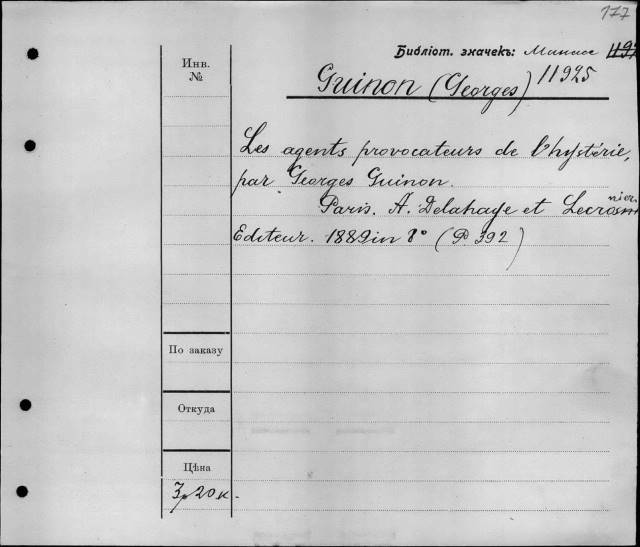 177
Библіот. значекъ: Минасе
Инв.
№
Guinon (Georges) 11925
Les agents provocateurs de l'hystérie,
par Georges Guinon.
Paris. A. Delahaye et Lecrosnier
Editeur. 1889 in 8° (P 392)
По заказу
Откуда
Цѣна
3 р 20 к.